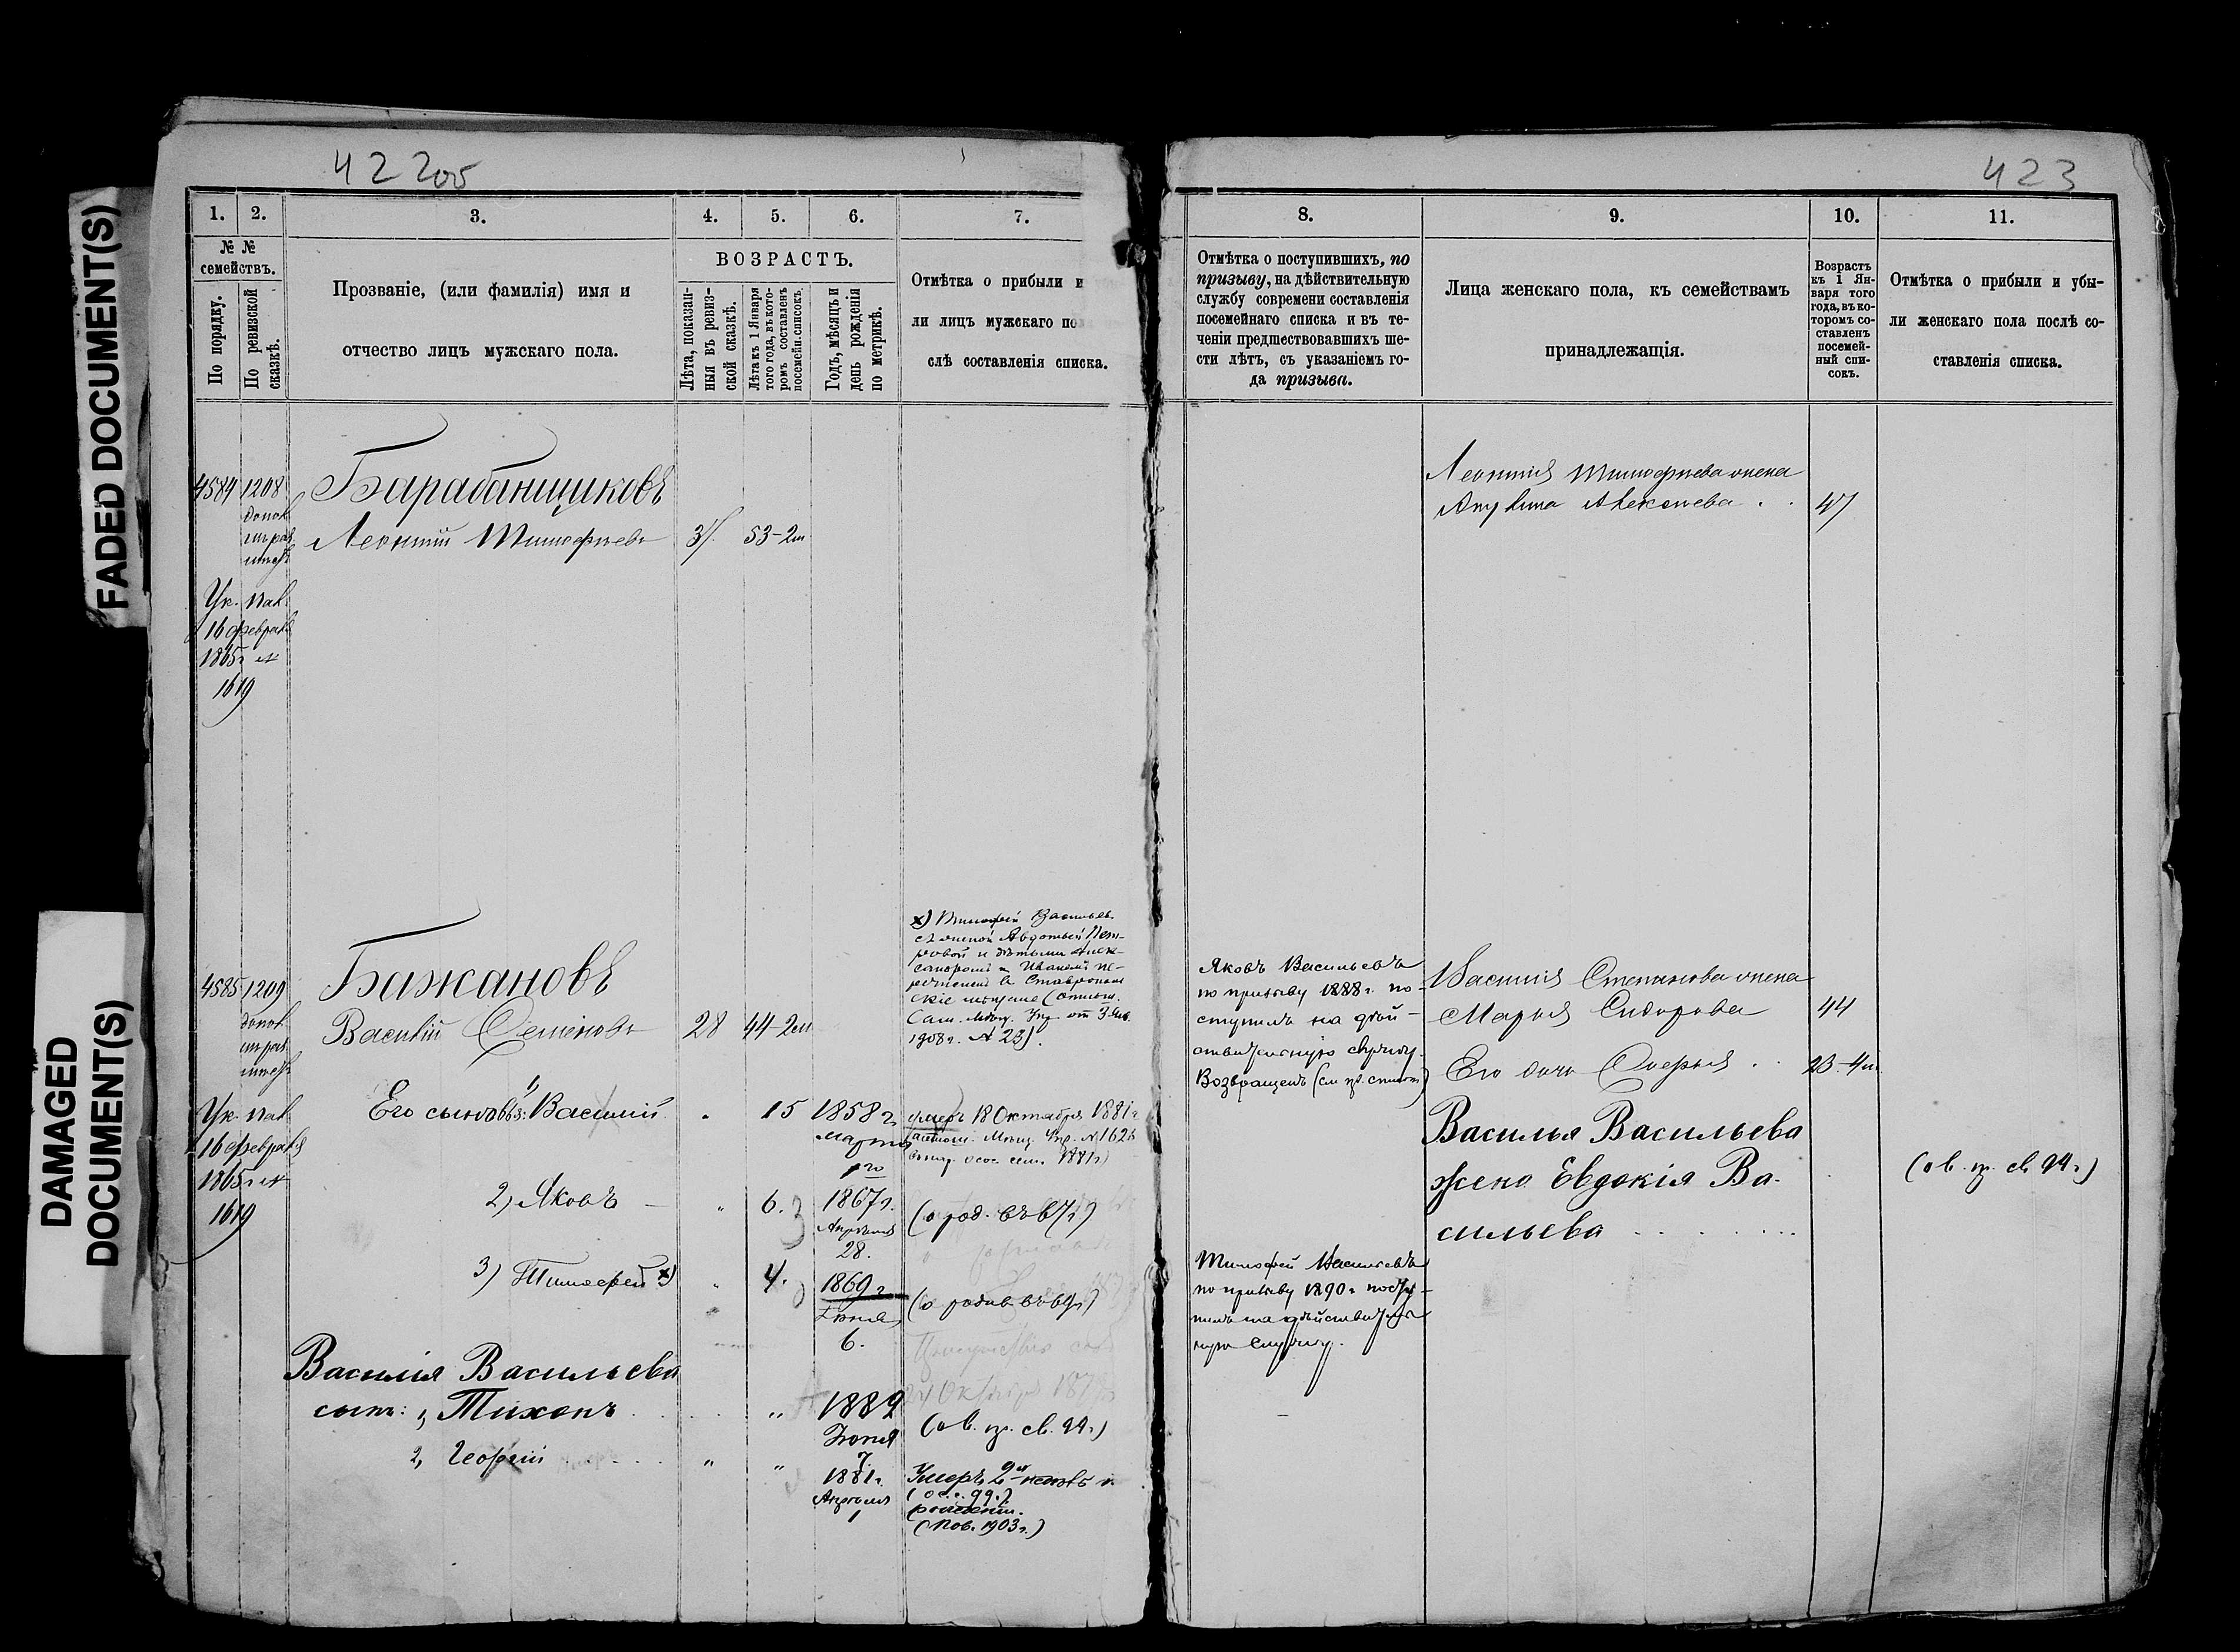 422об
423
FADED DOCUMENT(S)
DAMAGED
DOCUMENT(S)
1.
2.
3.
4.
5.
6.
7.
№ №
семействъ.
По порядку.
По ревизской
сказкѣ.
Прозваніе, (или фамилія) имя и
отчество лицъ мужскаго пола.
ВОЗРАСТЪ.
Лѣта, показан-
ныя въ ревиз-
ской сказкѣ.
Лѣта къ 1 Января
того года, въ кото-
ромъ составленъ
посемейн. списокъ.
Годъ, мѣсяцъ и
день рожденія
по метрикѣ.
Отмѣтка о прибыли и
ли лицъ мужскаго по
слѣ составленія списка.
4584
1208
допол
Барабанщиковъ
Леонтій Тимофѣевъ
53-2м
Ук.
16 февраля
1865 г. №
1619
4585
1209
допол
Бажановъ
Василій Семеновъ
28
44-2м
Ук.
16 февраля
1865 г. №
1619
х) Тимофей Васильев.
съ женой Авдотьей Пет-
ровой и дѣтьми Алек-
сандромъ и Иваномъ пе-
1908 г. № 23).
Его сыновья: 1) Василій
15
1858 г.
марта
умеръ 18 Октября 1881 г.
2) Яковъ
6.
1867 г.
Апрѣля
28.
(о род. въ
3) Тимофей х)
4.
1869 г.
Іюня
6.
Василія Васильева
сынъ: 1, Тихонъ
1882
Іюня
7.
2, Георгій
1881 г.
Апрѣля
1
Умеръ 2
(Пов. 1903 г.)
8.
9.
10.
11.
Отмѣтка о поступившихъ, по
призыву, на дѣйствительную
службу современи составленія
посемейнаго списка и въ те-
ченіи предшествовавшихъ ше-
сти лѣтъ, съ указаніемъ го-
да призыва.
Лица женскаго пола, къ семействамъ
принадлежащія.
Возрастъ
къ 1 Ян-
варя того
года, въ ко-
торомъ со-
ставленъ
посемей-
ный спи-
сокъ.
Отмѣтка о прибыли и убы-
ли женскаго пола послѣ со-
ставленія списка.
Леонтія Тимофѣева жена
Акулина Алексѣева
47
Яковъ Васильевъ
по призыву 1888 г. по-
ступилъ на дѣй-
ствительную службу.
Возвращенъ
Василія Степанова жена
Марья Сидорова
44
Его дочь
23-4м
Василья Васильева
жена Евдокія Ва-
сильева
Тимофей Васильевъ
по призыву 1890 г. посту-
пилъ на дѣйствитель-
ную службу.